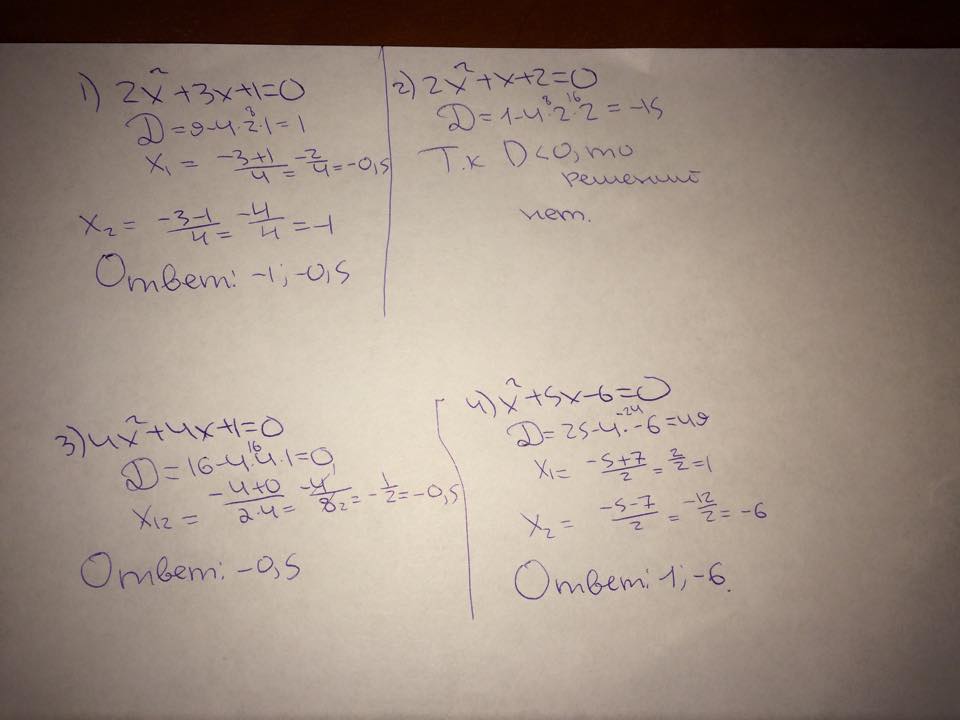 1) 2x²+3x+1=0
D=9-4·2·1=1
8
x₁ = -3+1/4 = -2/4 = -0,5
x₂ = -3-1/4 = -4/4 = -1
Ответ: -1; -0,5
2) 2x²+x+2=0
D=1-4·2·2=-15
8 16
Т.к D<0, то
решений
нет.
3) 4x²+4x+1=0
D=16-4·4·1=0
16
x₁₂ = -4+0/2·4 = -4¹/8₂ = -1/2 = -0,5
Ответ: -0,5
4) x²+5x-6=0
-24
D=25-4·-6=49
x₁= -5+7/2 = 2/2 = 1
x₂ = -5-7/2 = -12/2 = -6
Ответ: 1; -6.